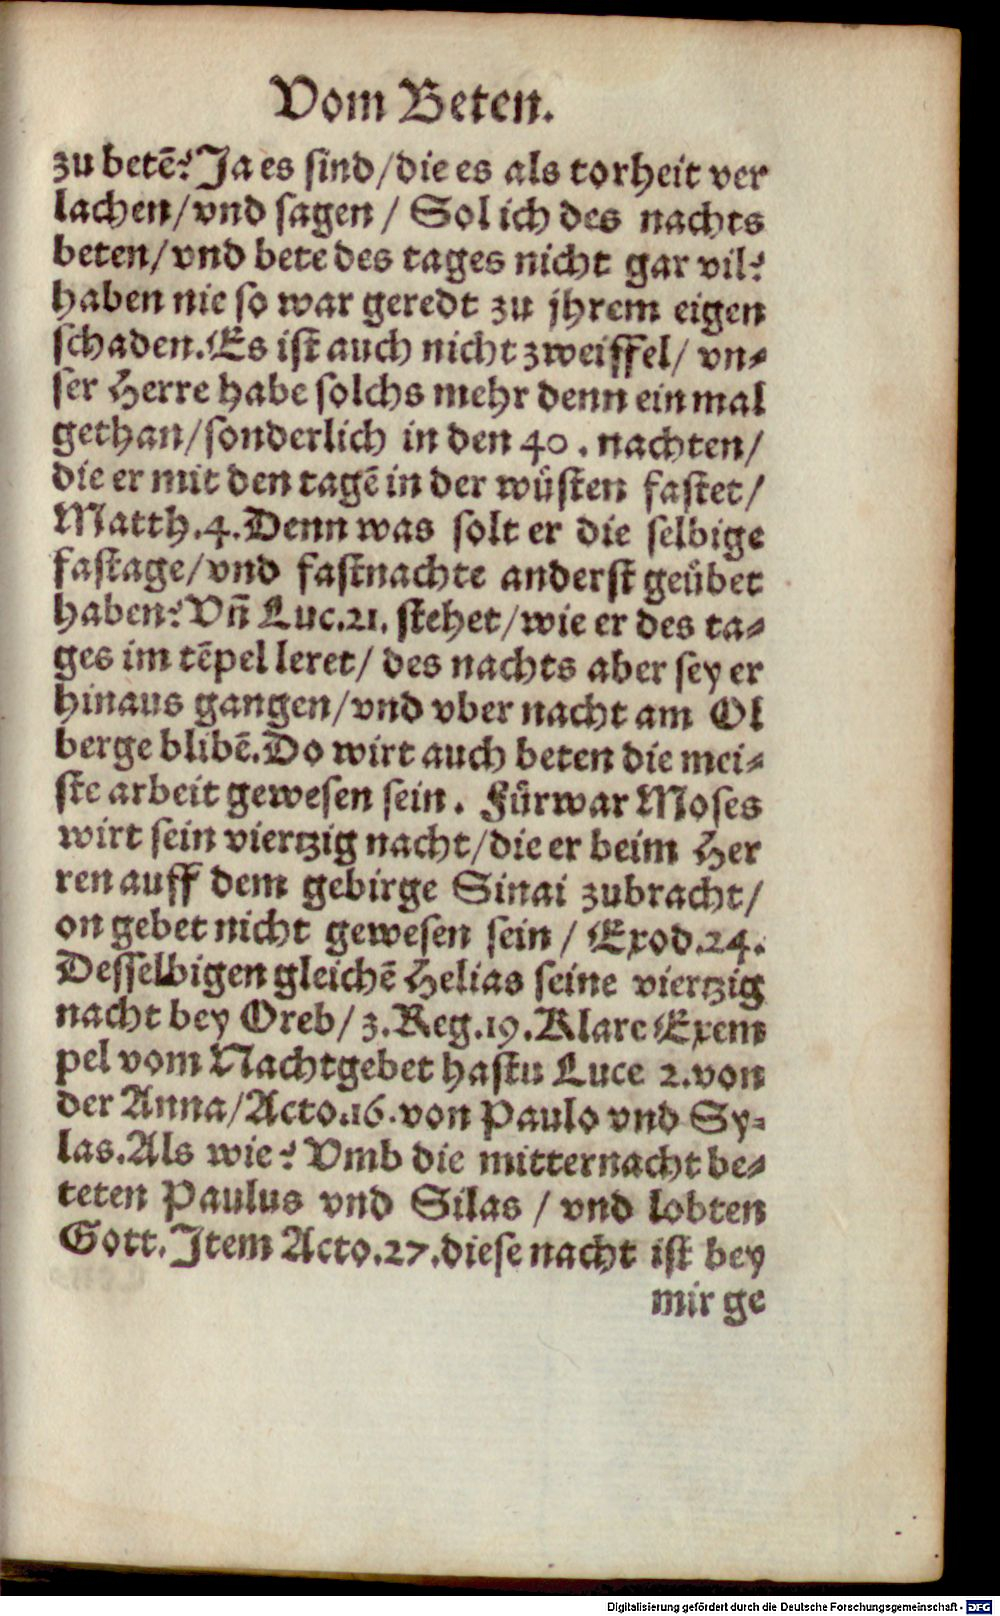 Vom Beten.
zu betē? Ja es sind/die es als torheit ver
lachen/vnd sagen / Sol ich des nachts
beten/vnd bete des tages nicht gar vil?
haben nie so war geredt zu jhrem eigen
schaden. Es ist auch nicht zweiffel/ vn-
ser Herre habe solchs mehr denn ein mal
gethan/sonderlich in den 40. nachten/
die er mit den tagē in der wüsten fastet/
Matth.4. Denn was solt er die selbige
fastage/vnd fastnachte anderst geübet
haben? Vñ Luc.21. stehet/wie er des ta-
ges im tēpel leret/ des nachts aber sey er
hinaus gangen/vnd vber nacht am Ol
berge blibē. Do wirt auch beten die mei-
ste arbeit gewesen sein. Fürwar Moses
wirt sein viertzig nacht/die er beim Her
ren auff dem gebirge Sinai zubracht/
on gebet nicht gewesen sein / Exod.24.
Desselbigen gleichē Helias seine viertzig
nacht bey Oreb/ 3. Reg.19. Klare Exem
pel vom Nachtgebet hastu Luce 2. von
der Anna/Acto.16. von Paulo vnd Sy-
las. Als wie? Vmb die mitternacht be-
teten Paulus vnd Silas / vnd lobten
Gott. Item Acto.27. diese nacht ist bey
mir ge
Digitalisierung gefördert durch die Deutsche Forschungsgemeinschaft - DFG